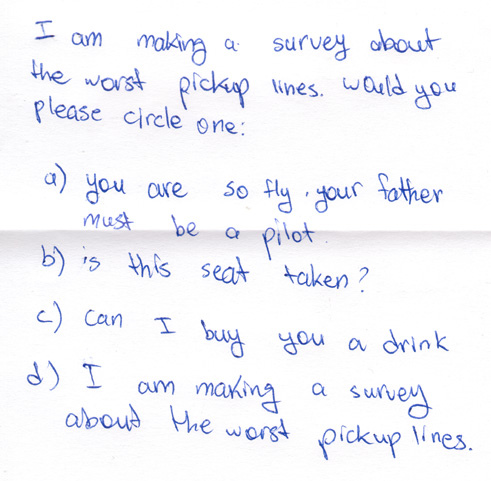 I am making a survey about
the worst pickup lines. Would you
please circle one:
a) you are so fly, your father
must be a pilot.
b) is this seat taken?
c) can I buy you a drink
d) I am making a survey
about the worst pickup lines.